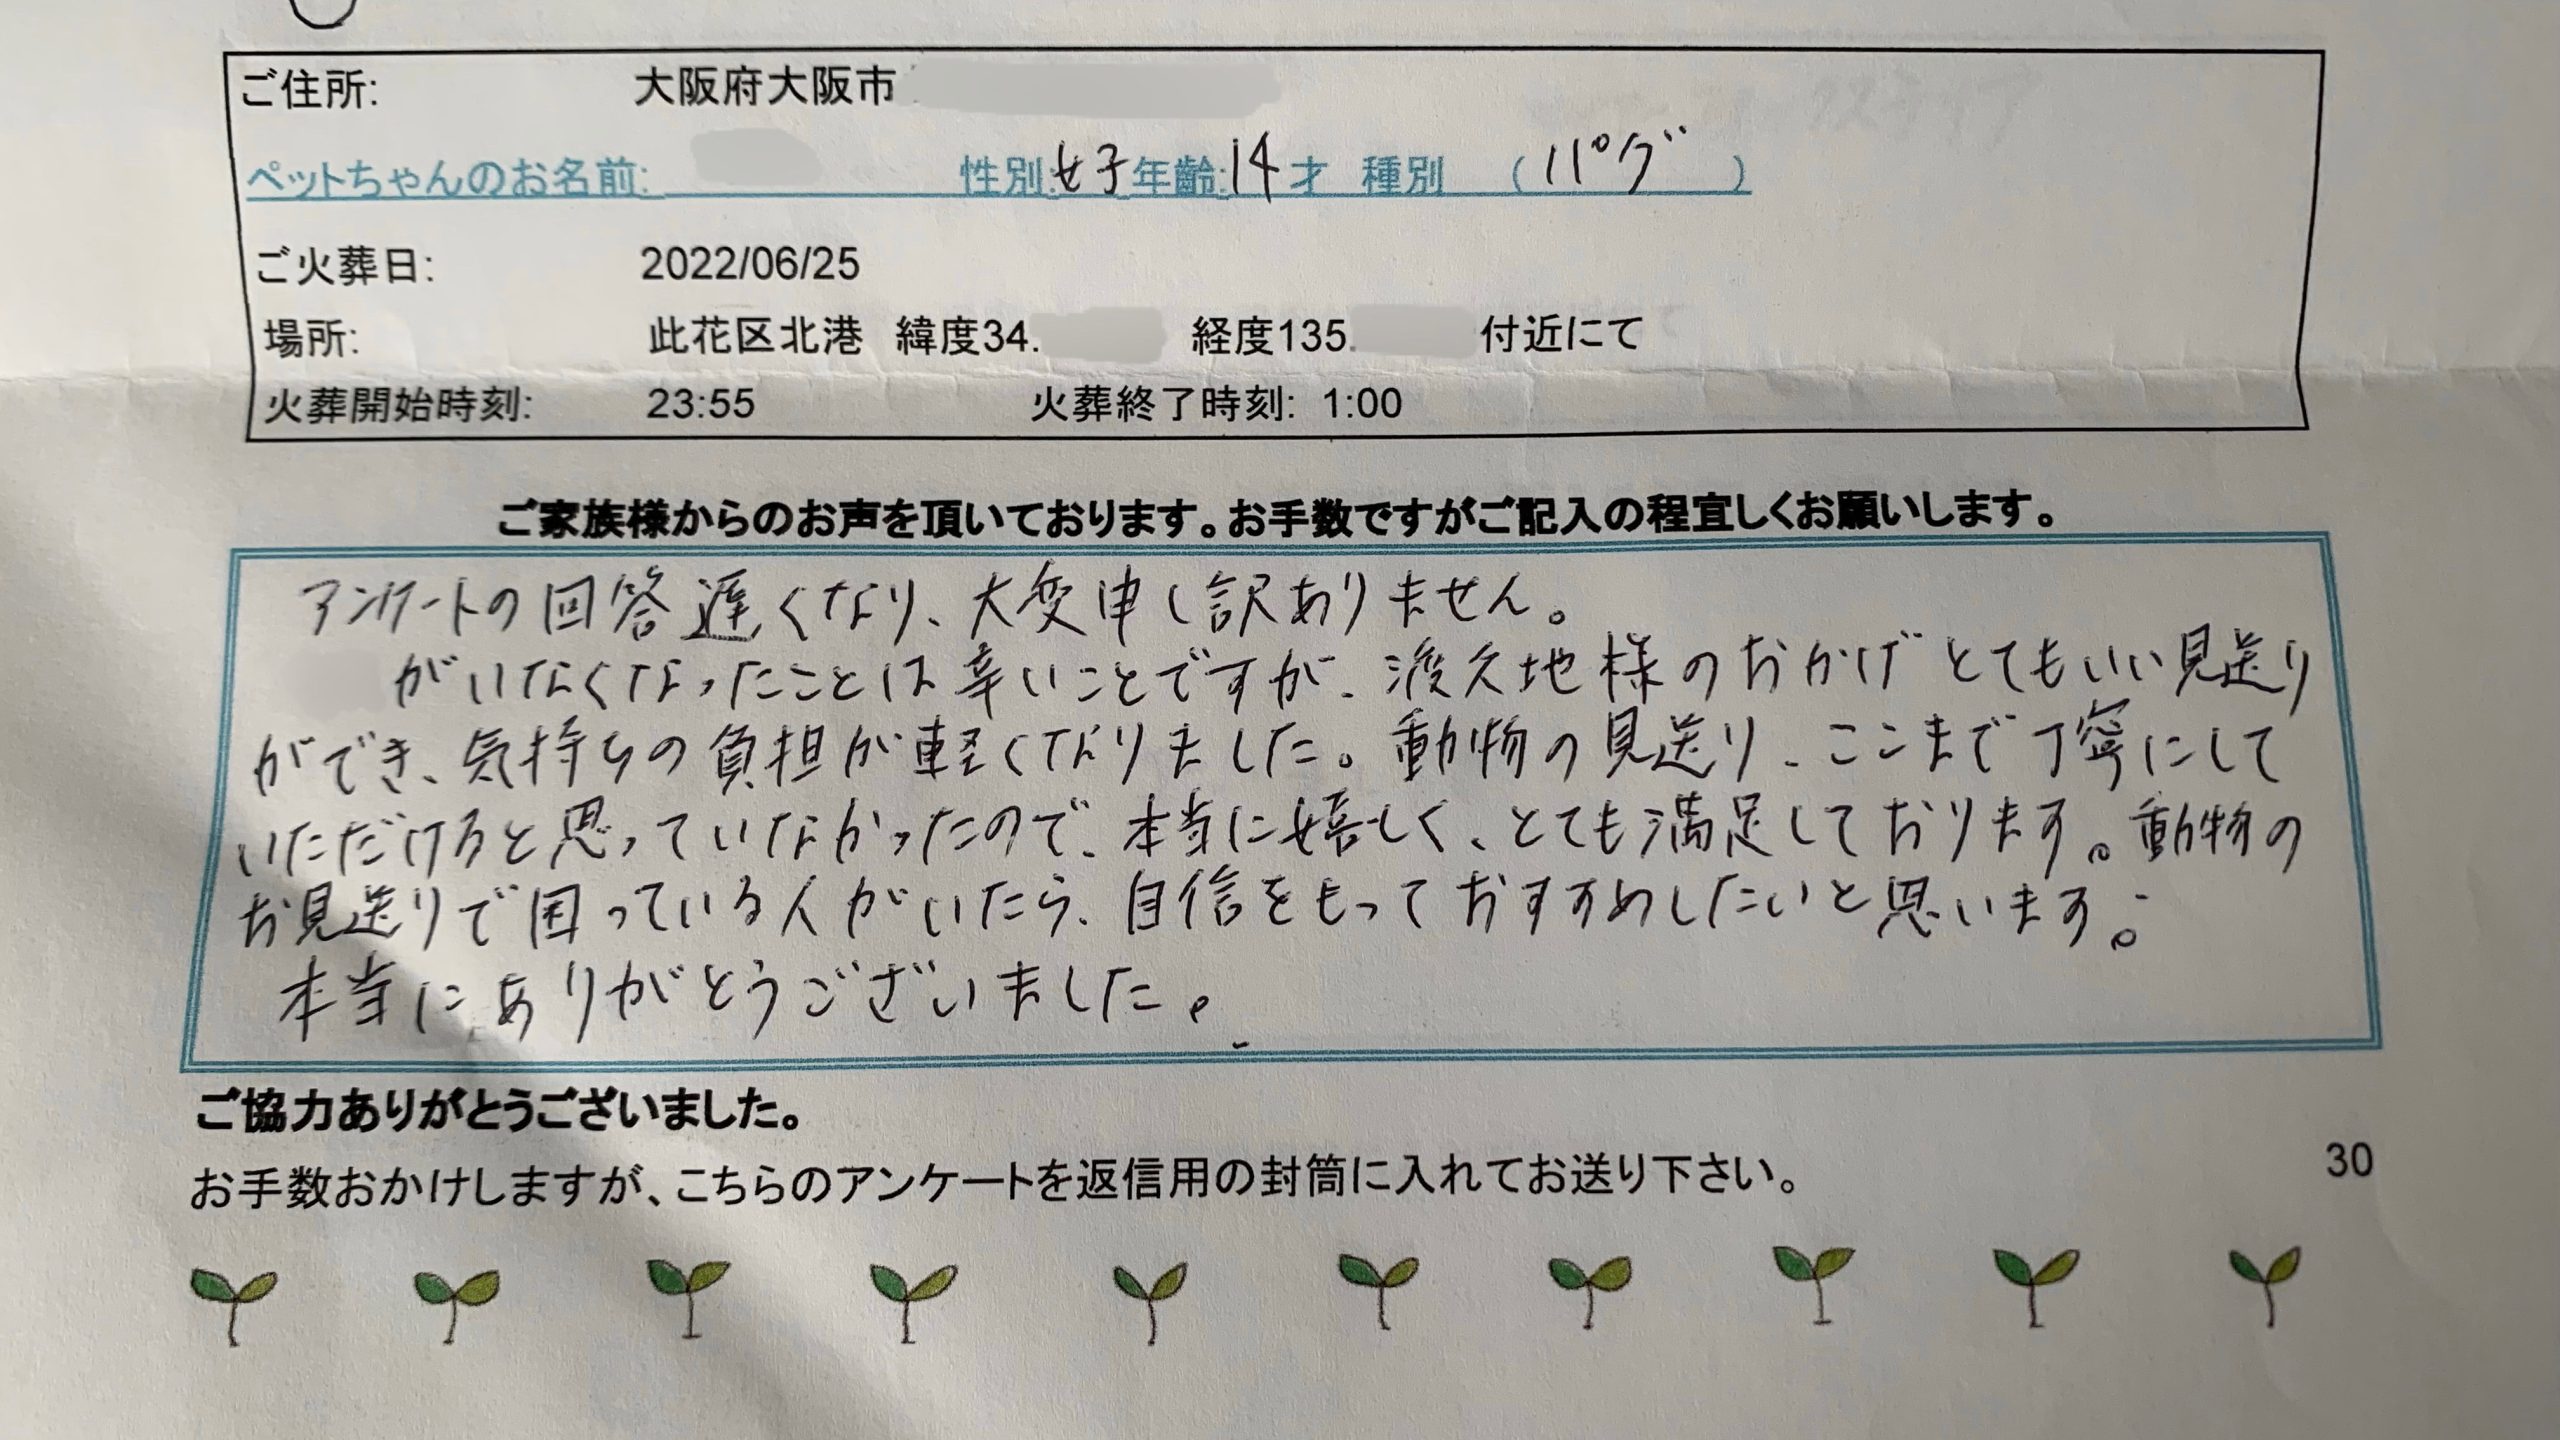 ご住所: 大阪府大阪市
ペットちゃんのお名前: 性別:女子 年齢:14才 種別 (パグ)
ご火葬日: 2022/06/25
場所: 此花区北港 緯度34. 経度135. 付近にて
火葬開始時刻: 23:55 火葬終了時刻: 1:00
ご家族様からのお声を頂いております。お手数ですがご記入の程宜しくお願いします。
アンケートの回答遅くなり、大変申し訳ありません。
がいなくなったことは辛いことですが、渡久地様のおかげとてもいい見送り
ができ、気持ちの負担が軽くなりました。動物の見送り、ここまで丁寧にして
いただけると思っていなかったので、本当に嬉しく、とても満足しております。動物の
お見送りで困っている人がいたら、自信をもっておすすめしたいと思います。
本当にありがとうございました。
ご協力ありがとうございました。
お手数おかけしますが、こちらのアンケートを返信用の封筒に入れてお送り下さい。
30